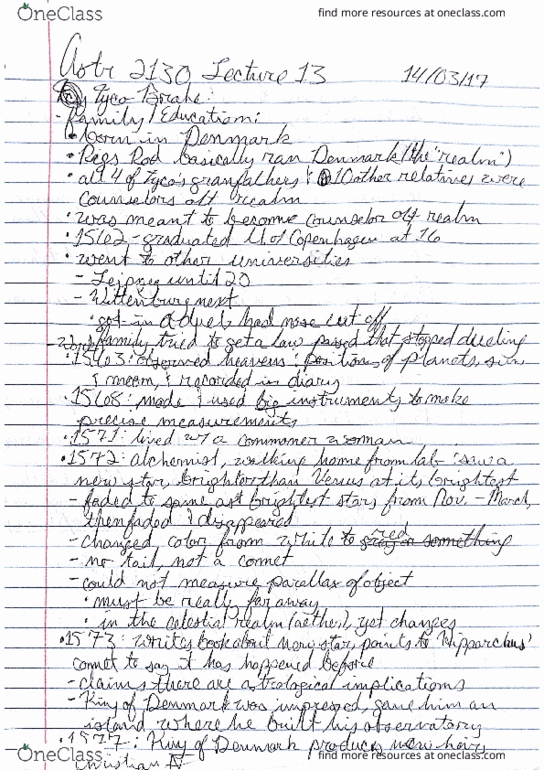 OneClass
find more resources at oneclass.com
Astr 2130 Lecture 13 14/03/17
Tyco Brahe:
- Family / Education:
• born in Denmark
• Rigs Rod basically ran Denmark (the "realm")
• all 4 of Tyco's granfathers & 10 other relatives were
counselors off realm
• was meant to become counselor off realm
• 1562 - graduated U of Copenhagen at 16
• went to other universities
- Leipzeg until 20
- Wittenburg next
• got in a duel, had nose cut off
family tried to get a law passed that stopped dueling
• 1563: observed heavens; positions of planets, sun
& moon, & recorded in diary
• 1568: made & used big instruments to make
precise measurements
• 1571: lived w/ a commoner woman
• 1572: alchemist, walking home from lab & saw a
new star, brighter than Venus at its brightest
- faded to same as brightest stars from Nov. - March,
then faded & disappeared
- changed color from white to red something
- no tail, not a comet
- could not measure parallax of object
• must be really far away
• in the celestial realm (aether), yet changes
• 1573: writes book about new star, points to Hipparchus'
comet to say it has happened before
- claims there are astrological implications
- King of Denmark was impressed, gave him an
island where he built his observatory
• 1577: King of Denmark produces new heir,
Christian IV
OneClass
find more resources at oneclass.com